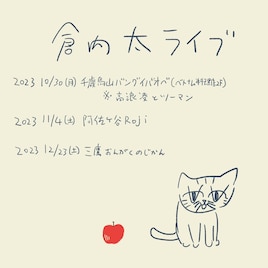 倉内太ライブ
2023 10/30(月)千歳烏山バングイバオベ(ベトナム料理店2F)
※高浪凌とツーマン
2023 11/4(土) 阿佐ヶ谷Roji
2023 12/23(土) 三鷹おんがくのじかん